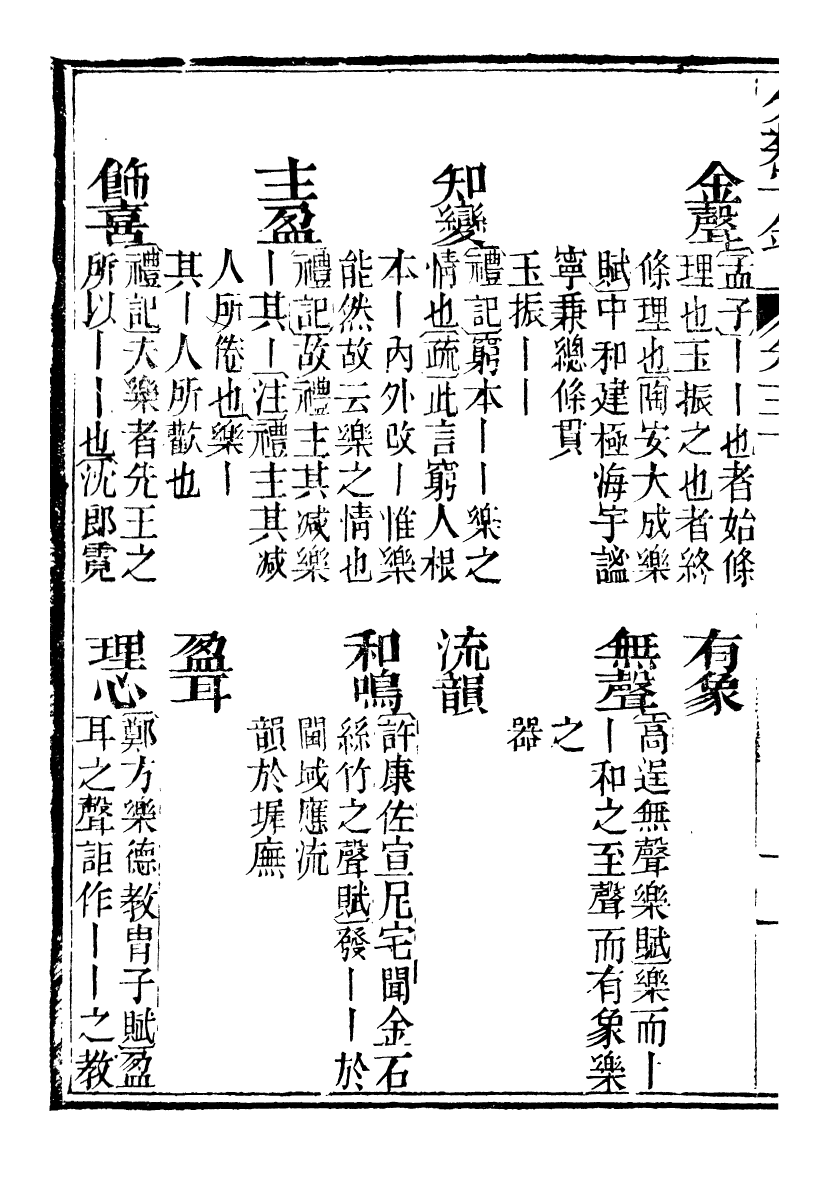 金聲
孟子丨丨也者始條
理也玉振之也者終
條理也陶安大成樂
賦中和建極海宇謐
寧秉總條貫
玉振丨丨
知變
禮記窮本丨丨樂之
情也疏此言窮人根
本丨內外改丨惟樂
能然故云樂之情也
主盈
禮記故禮主其减樂
丨其丨注禮主其减
人所倦也樂丨
其丨人所歡也
飾喜
禮記大樂者先王之
所以丨丨也沈郎霓
有象
無聲
高逞無聲樂賦樂而丨
丨和之至聲而有象樂
之
器
流韻
和鳴
許康佐宣尼宅聞金石
絲竹之聲賦發丨丨於
閫域應流
韻於墀廡
盈耳
理心
鄭方樂德教冑子賦盈
耳之聲詎作丨丨之教